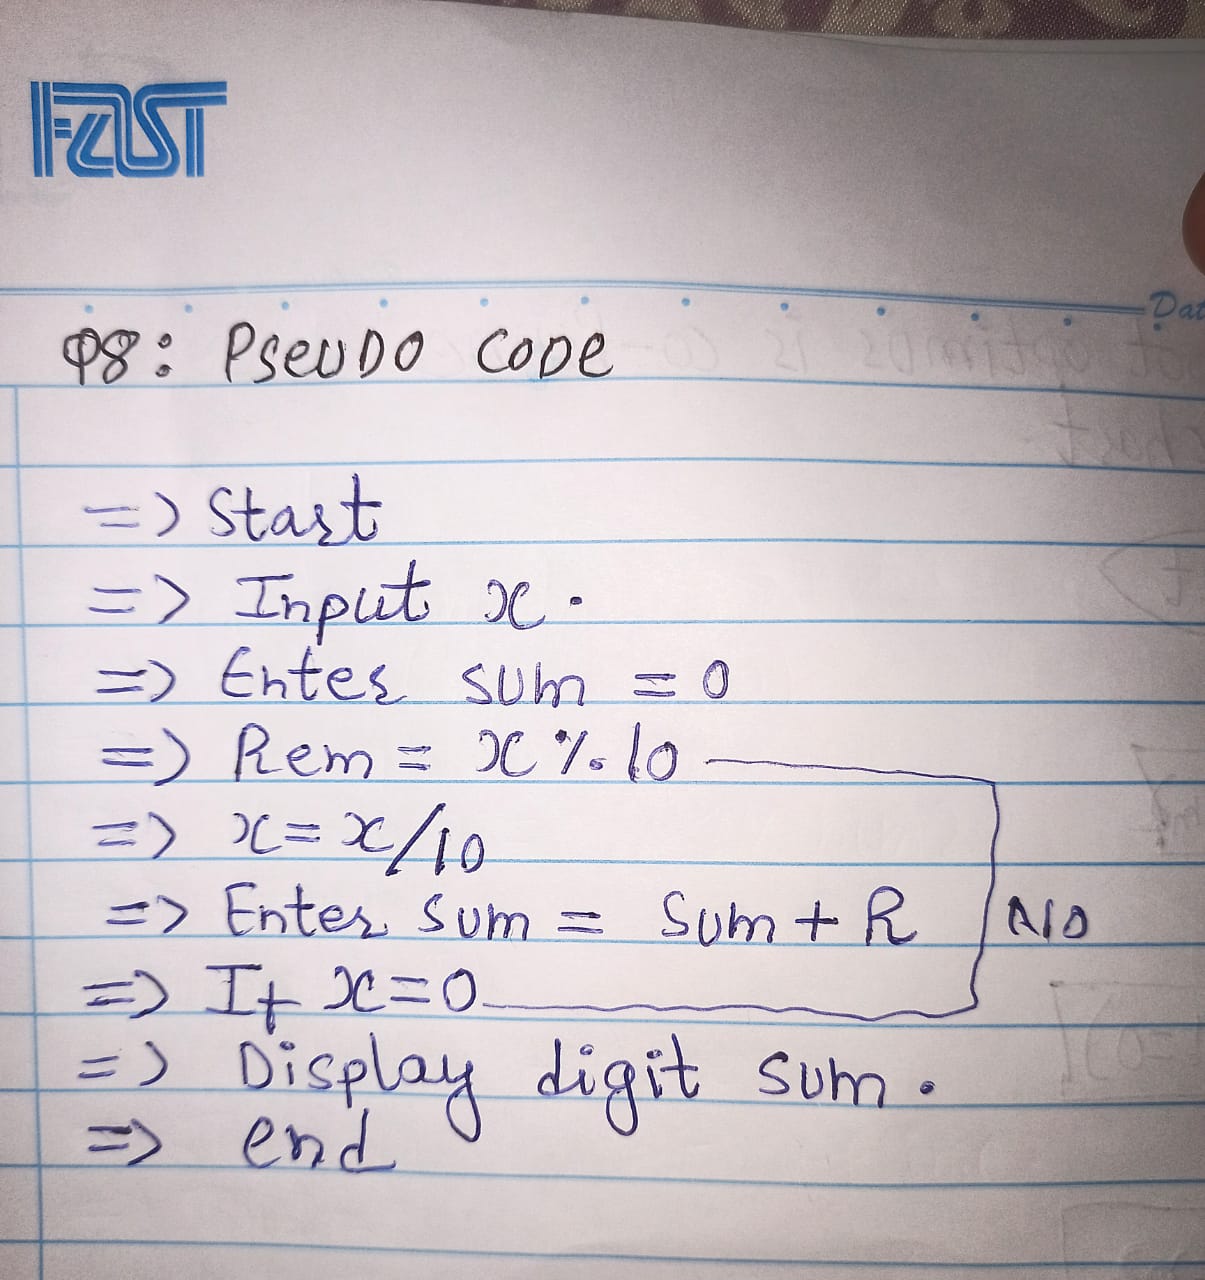 FAST
Dat
Q8: PSEUDO CODE
=> Start
=> Input x.
=> Enter sum = 0
=> Rem = x % 10
=> x = x/10
=> Enter sum = Sum + R
NO
=> If x=0
=> Display digit sum.
=> end